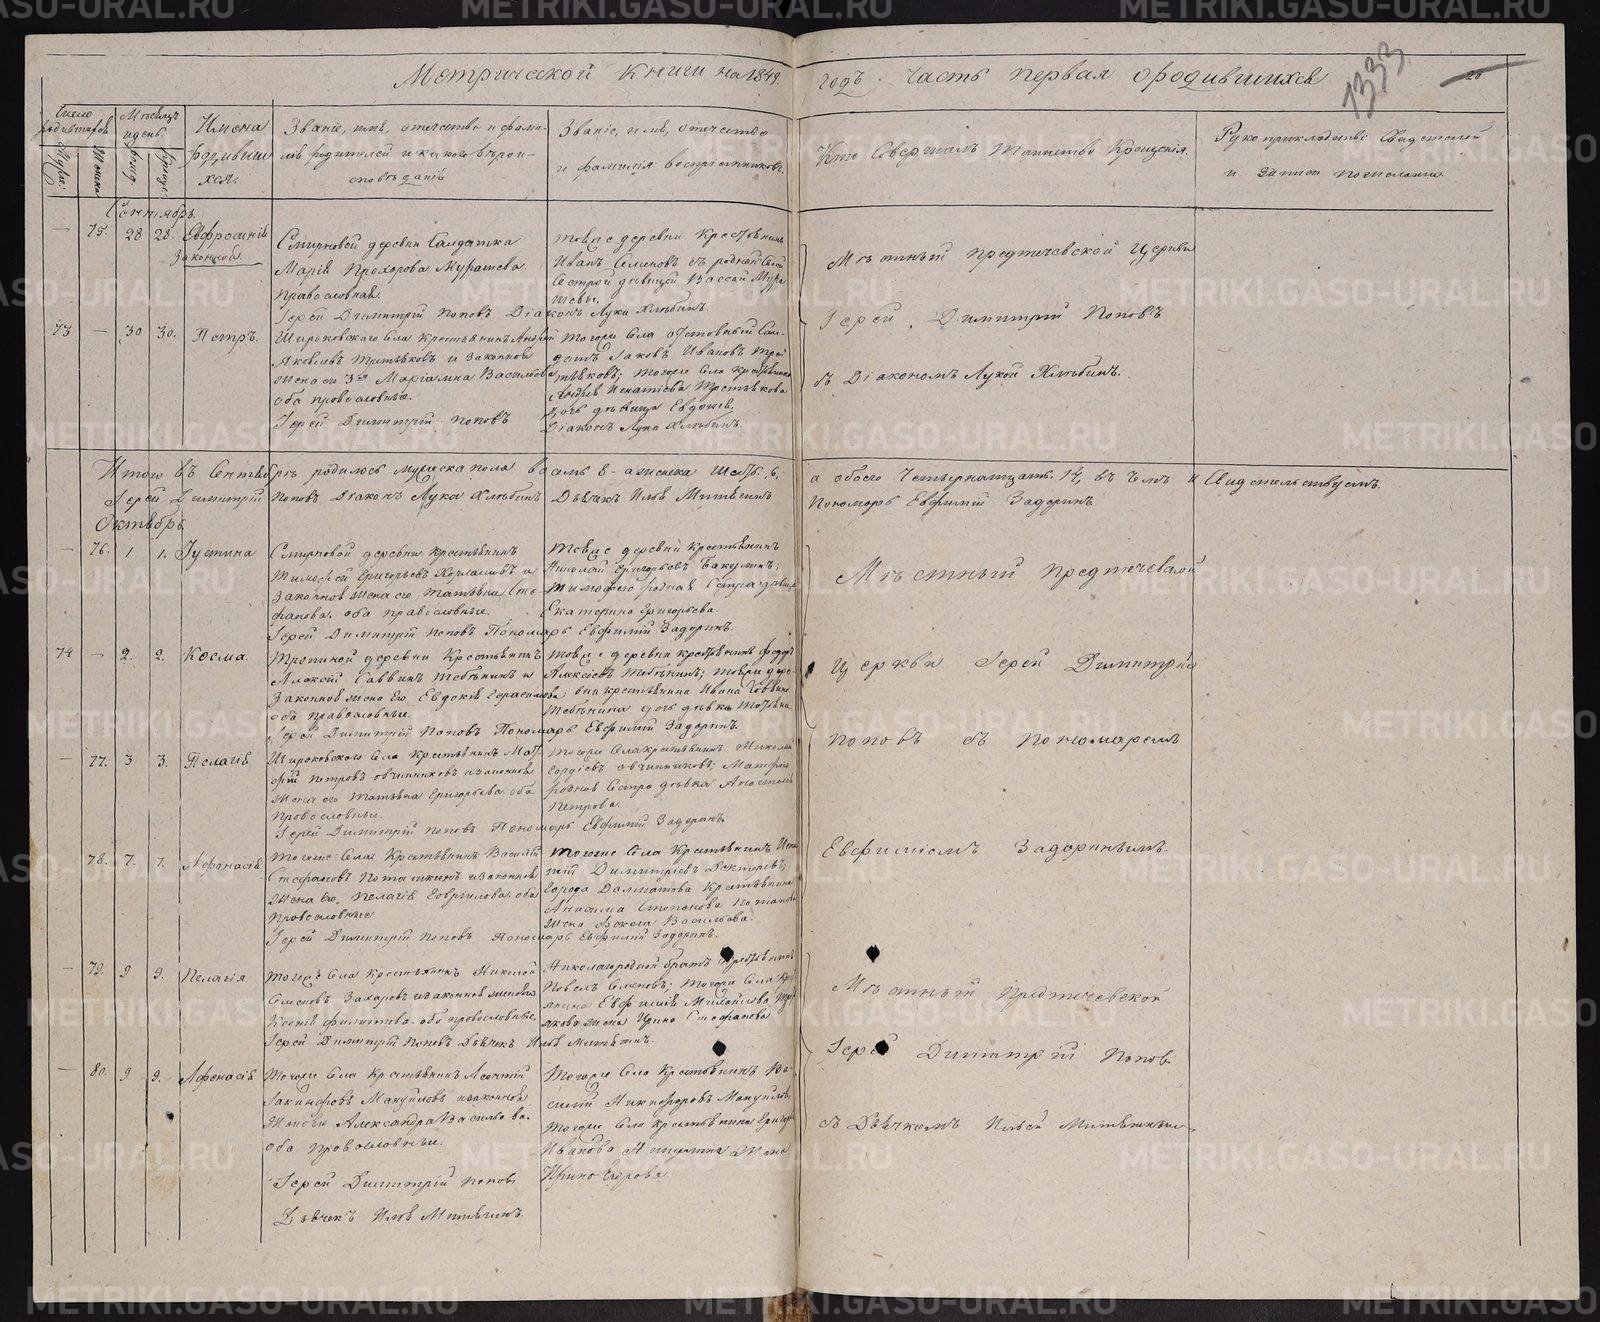 Метрической книги на 1849. годъ. Часть первая о родившихся
1333
Число родившихся
Мужес:
Женска
Мѣсяцъ и день
Рожд.
Крещ.
Имена родивших ся.
Званіе, имя, отечество и фами-
лія родителей и какого вѣрои-
сповѣданій
Званіе, имя, отечество
и фамилія воспріемниковъ.
Кто совершалъ Таинство Крещенія.
Рукоприкладство Свидетелей
и записи по желанію.
Сентябрь.
— 75. 28 28. Евфросинія
Законной.
Смирновой деревни Солдатка
Марія Прохорова Мурашева
православная.
Іерей Димитрій Поповъ Діаконъ Лука Хлѣбинъ.
тойже деревни Крестьянинъ
Иванъ Семеновъ съ родной
Сестрой дѣвицей Вассой Мура
шевы.
Мѣстный Предтечевской Церкви
Іерей Димитрій Поповъ
съ Діакономъ Лукой Хлѣбинъ.
73 — 30 30. Петръ.
Широковского Села Крестьянинъ Андрей
Яковлевъ Третьяковъ и законной
жена 3мъ Маріамна Васильева
оба православные.
Іерей Димитрій Поповъ
Тогоже Села отставный Сол-
датъ Іаковъ Ивановъ Трет
тьяковъ; тогоже Села крестьянина
Андрея Игнатіева Третьякова
Дочь дѣвица Евдокія.
Діаконъ Лука Хлѣбинъ.
Итого въ Сентябрѣ родилось мужеска пола восемь 8 - а женска шесть. 6, а обоего Четырнатцать. 14, въ чемъ и Свидетельствуемъ.
Іерей Димитрій Поповъ Діаконъ Лука Хлѣбинъ Дьячекъ Илья Митюшинъ Пономарь Евфимій Задоринъ
Октябрь.
— 76. 1 1. Іустина
Смирновой деревни крестьянинъ
Тимофей Григорьевъ и
Законноя жена его Татьяна Сте
фанова. оба православные.
Іерей Димитрій Поповъ Пономарь Евфимій Задоринъ.
Тойже деревни Крестьянинъ
Николай Григорьевъ Бакулинъ;
Тимофея родная Сестра дѣвица
Екатерина Григорьева.
Мѣстный Предтечевской
Церкви Іерей Димитрій
Поповъ съ Пономаремъ
Евфиміемъ Задоринымъ.
74 — 2. 2. Косма.
Тропиной деревни Крестьянинъ
Алексій Саввинъ и
Законноя жена Его Евдокія Герасимова
оба православные.
Іерей Димитрій Поповъ Пономарь Евфимій Задоринъ.
Тойже деревни крестьянинъ Федоръ
Алексіевъ; тойже дере-
вни крестьянина Ивана Саввина
дочь дѣвка Татьяна
— 77. 3 3. Пелагія
Широковского Села Крестьянинъ Мат
фій Петровъ Овчинниковъ и законноя
жена его Татьяна Григорьева. оба
Православные.
Іерей Димитрій Поповъ Пономарь Евфимій Задоринъ
Тогоже Села крестьянинъ Николай
Гордіевъ Овчинниковъ; Матфія
родноя Сестра дѣвка Анастасія
Петрова.
— 78. 7. 7. Афонасія
Тогоже Села Крестьянинъ Василій
Стефановъ Потаскинъ и законноя
жена Его. Пелагія Гаврилова. оба
Православные
Іерей Димитрій Поповъ Пономарь Евфимій Задоринъ.
Тогоже Села Крестьянинъ
Димитріевъ
Города Далматова Крестьянина
Анисима Степанова
жена Фекла Васильева.
— 79. 9 9. Пелагія
Тогоже Села Крестьянинъ Николай
Семеновъ Захаровъ и законноя
Ксенія Филипова. оба православные.
Іерей Димитрій Поповъ Дьячекъ Илья Митюшинъ.
Николая родной братъ Крестьянинъ
Павелъ Семеновъ; тогоже Села Крест
янина Евфимія Михайлова
жена Ирина Стефанова
Мѣстный Предтечевской
Іерей Димитрій Поповъ
съ Дьячкомъ Ильей Митюшинымъ
— 80. 9 9. Афонасія
Тогоже Села Крестьянинъ Леонтій
Іакинфовъ Мануиловъ и законноя
Жена Александра Васильева.
оба православные.
Іерей Димитрій Поповъ
Дьячекъ Илья Митюшинъ.
Тогоже Села Крестьянинъ Ва-
силій Никифоровъ Мануиловъ
тогоже Села крестьянина Григорія
Иванова жена
Ирина Егорова.
METRIKI.GASO-URAL.RU